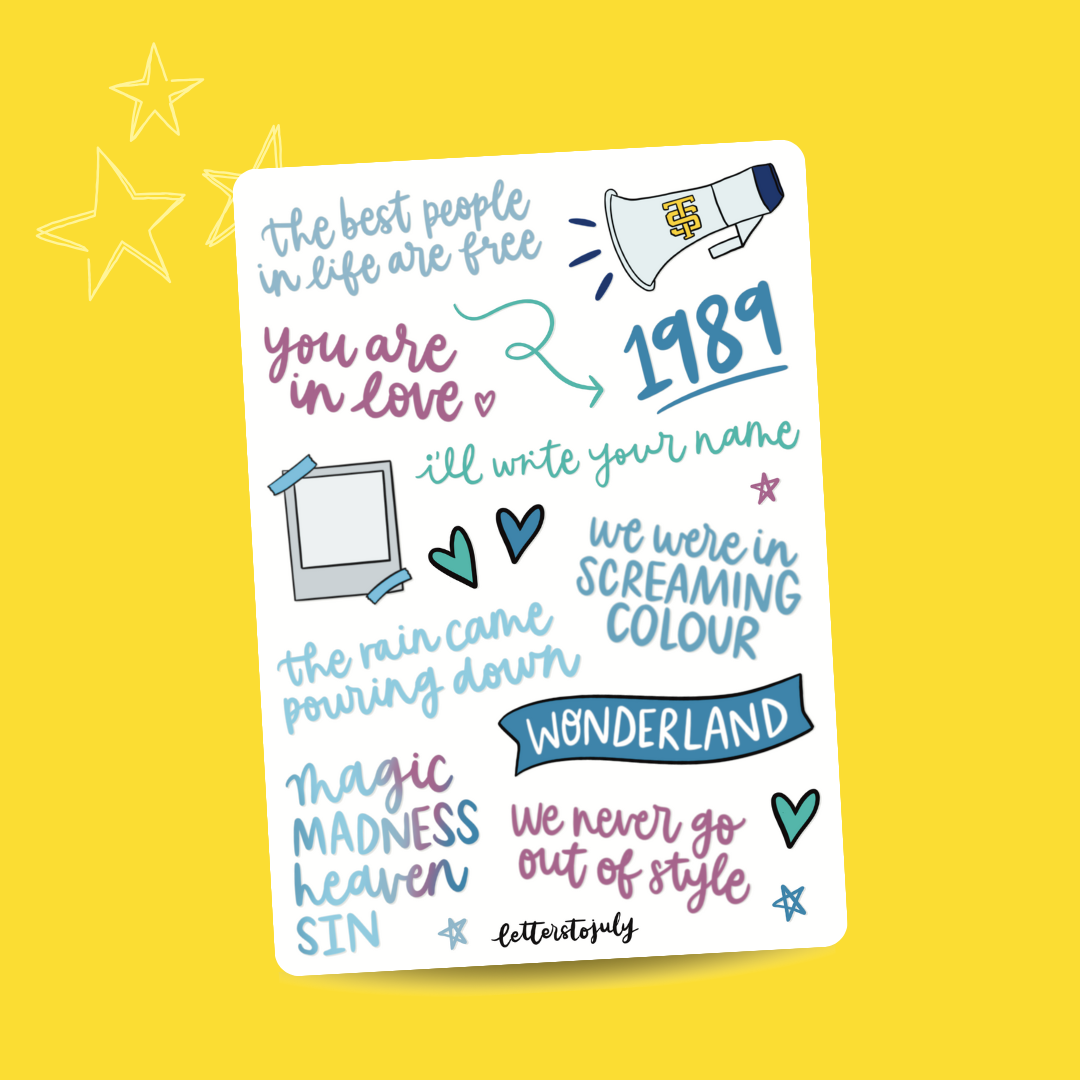 the best people
in life are free
TS
1989
you are
in love
i'll write your name
we were in
SCREAMING
COLOUR
the rain came
pouring down
WONDERLAND
magic
MADNESS
heaven
SIN
we never go
out of style
letterstojuly